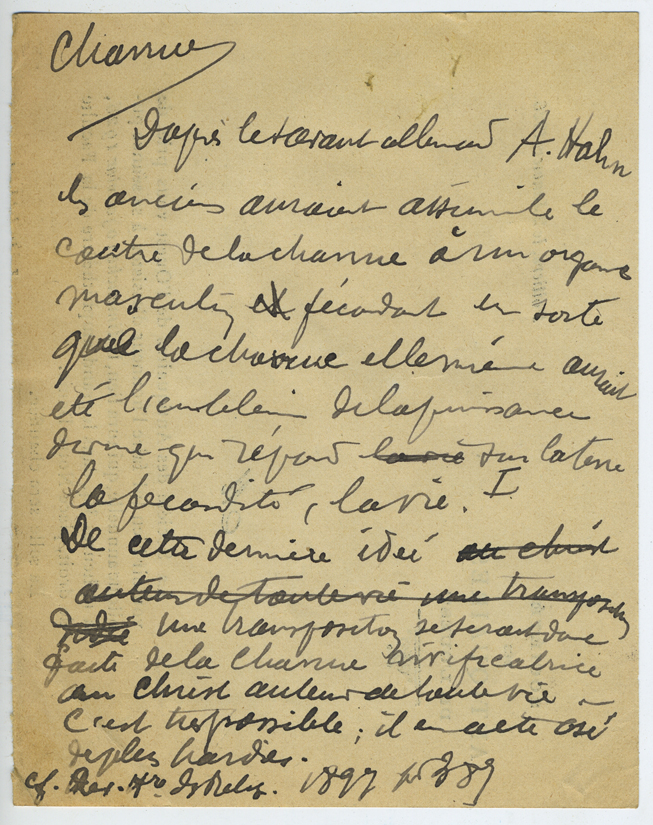 Charrue
D'après le savant allemand A. Hahn
les anciens auraient assimilé le
coutre de la charrue à un organe
masculin et fécondant en sorte
que la charrue elle même aurait
été l'emblème de la puissance
divine qui répand la vie sur la terre
la fécondité, la vie. I
De cette dernière idée au christ
auteur de toute vie une transposition
une transposition se serait donc
faite de la charrue vivificatrice
au Christ auteur de toute vie -
C'est très possible ; il en a été osé
de plus hardies.
cf. Rev. Hre. des Relig. 1897 p. 389